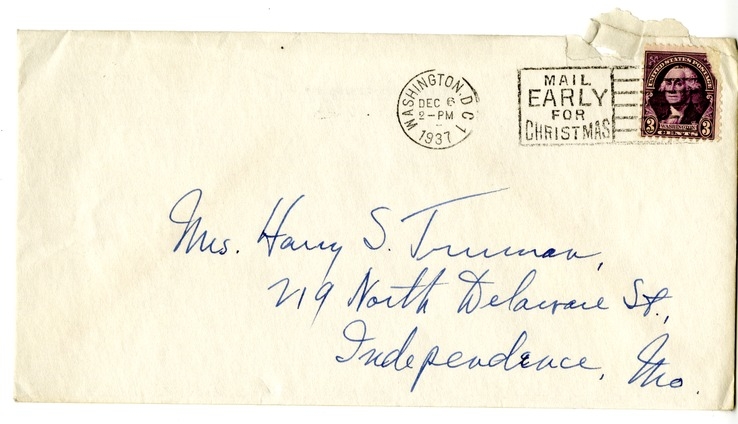 WASHINGTON, D.C. 1
DEC 6
2-PM
1937
MAIL
EARLY
FOR
CHRISTMAS
UNITED STATES POSTAGE
3 WASHINGTON 3
CENTS
Mrs. Harry S. Truman,
219 North Delaware St.,
Independence, Mo.